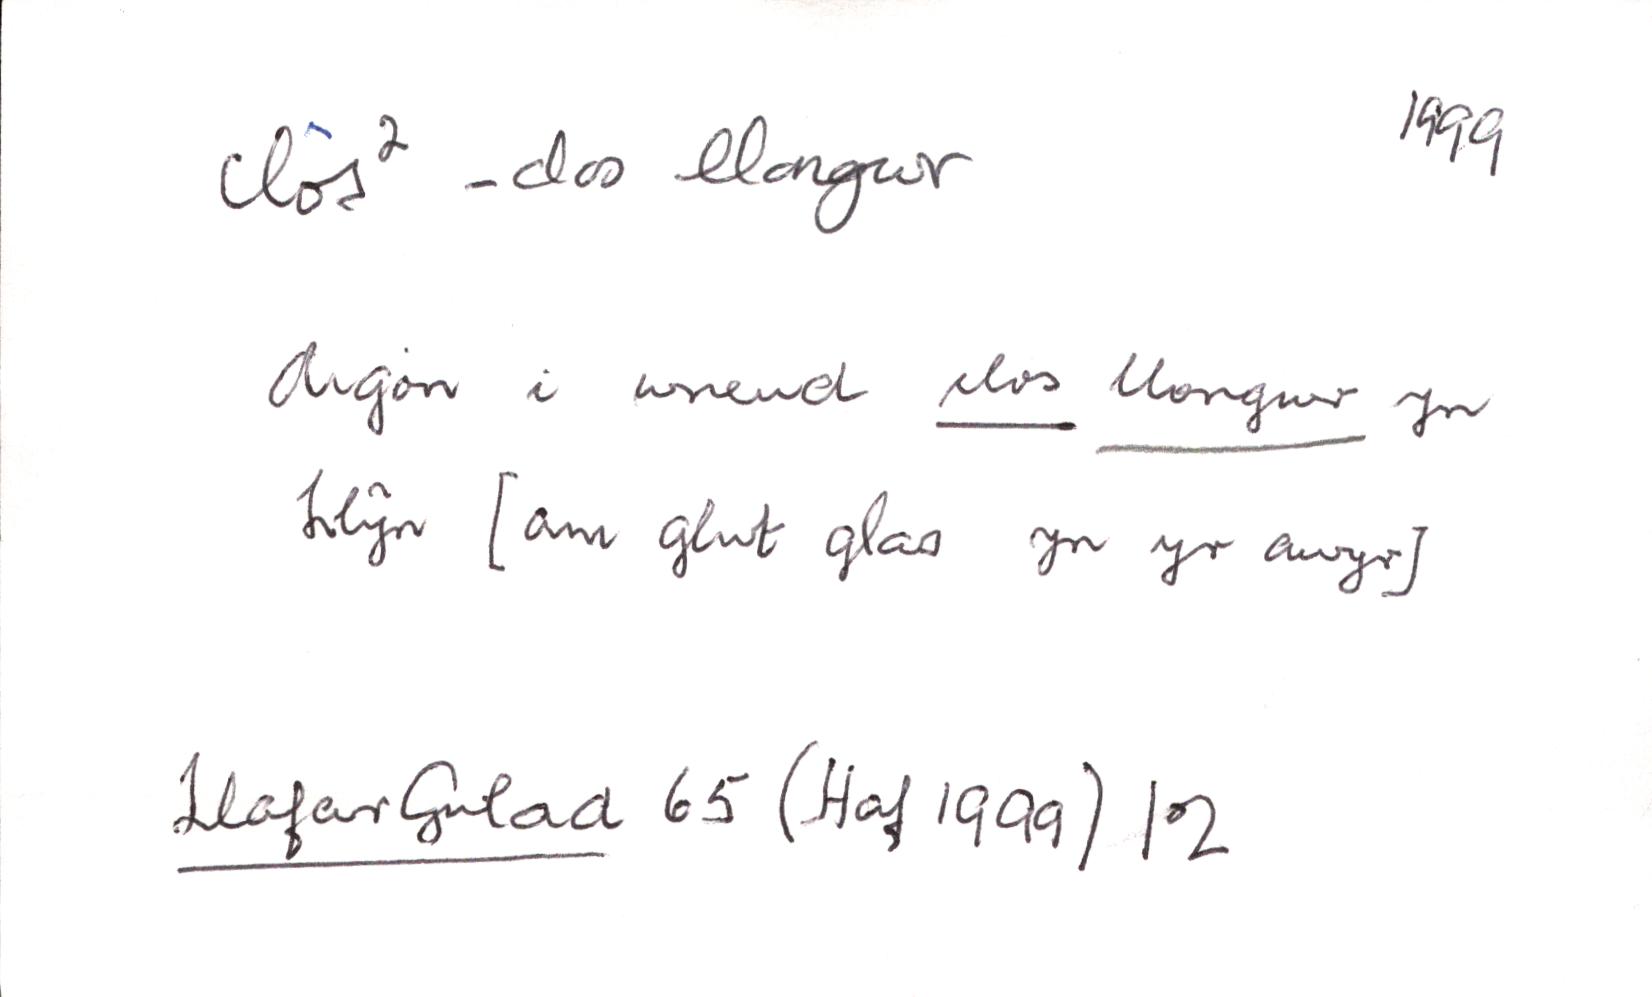 clôs² - clos llongwr
1999
digon i wneud clos llongwr yn
Llŷn [am glwt glas yn yr awyr]
Llafar Gwlad 65 (Haf 1999) 12